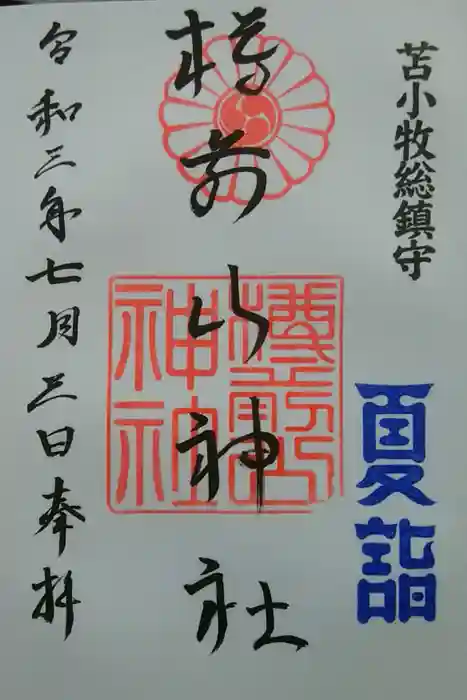 苫小牧総鎮守
夏詣
樽前山神社
樽前山
神社
令和三年七月三日奉拝